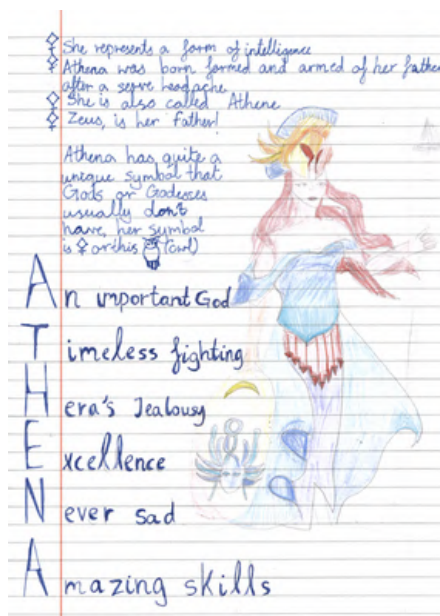 She represents a form of intelligence
Athena was born formed and armed of her father
after a serve headache
She is also called Athene
Zeus, is her father!
Athena has quite a
unique symbol that
Gods or Godesses
usually don't
have, her symbol
is or this (owl)
An important God
Timeless fighting
Hera's Jealousy
Excellence
Never sad
Amazing skills